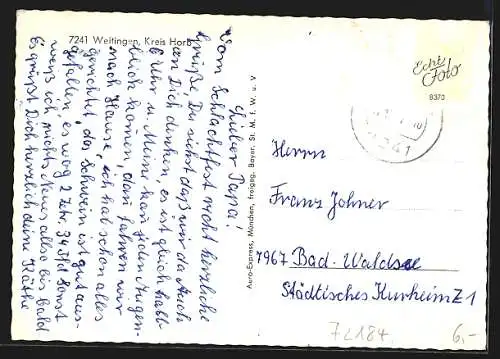 7241 Weitingen, Kreis Horb
Lieber Papa!
Vom Schlachtfest recht herzliche
Grüße, Du siehst daß wir da Auch
an Dich denken, es ist gleich halb
6 Uhr u. Meine kan jeden Augen-
blick komen, dan fahren wir
nach Hause, ich hab schon alles
gerichtet, das Schwein ist gut aus-
gefallen, es wog 2 Ztr. 34 Pfd Sonst
weis ich nichts Neues also bis bald
Es grüßt Dich herzlich deine Käthe
Aero-Express, München, freigeg. Bayer. St. M. f. W. u. V
Echt
Foto
8370
7241
Herrn
Franz Johner
7967 Bad-Waldsee
Städtisches Kurheim Z 1
7L184
6,-